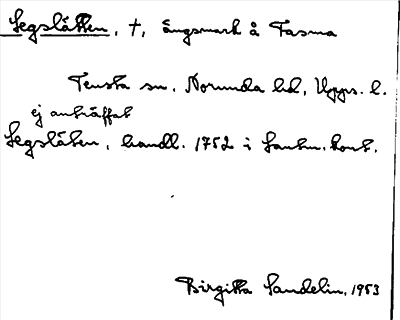 Segslätten, †, ängsmark å Tasma
Tensta sn, Norunda hd, Upps. l.
ej anträffat
Segslåten, handl. 1752 i lantm. kont.
Birgitta Sandelin, 1953